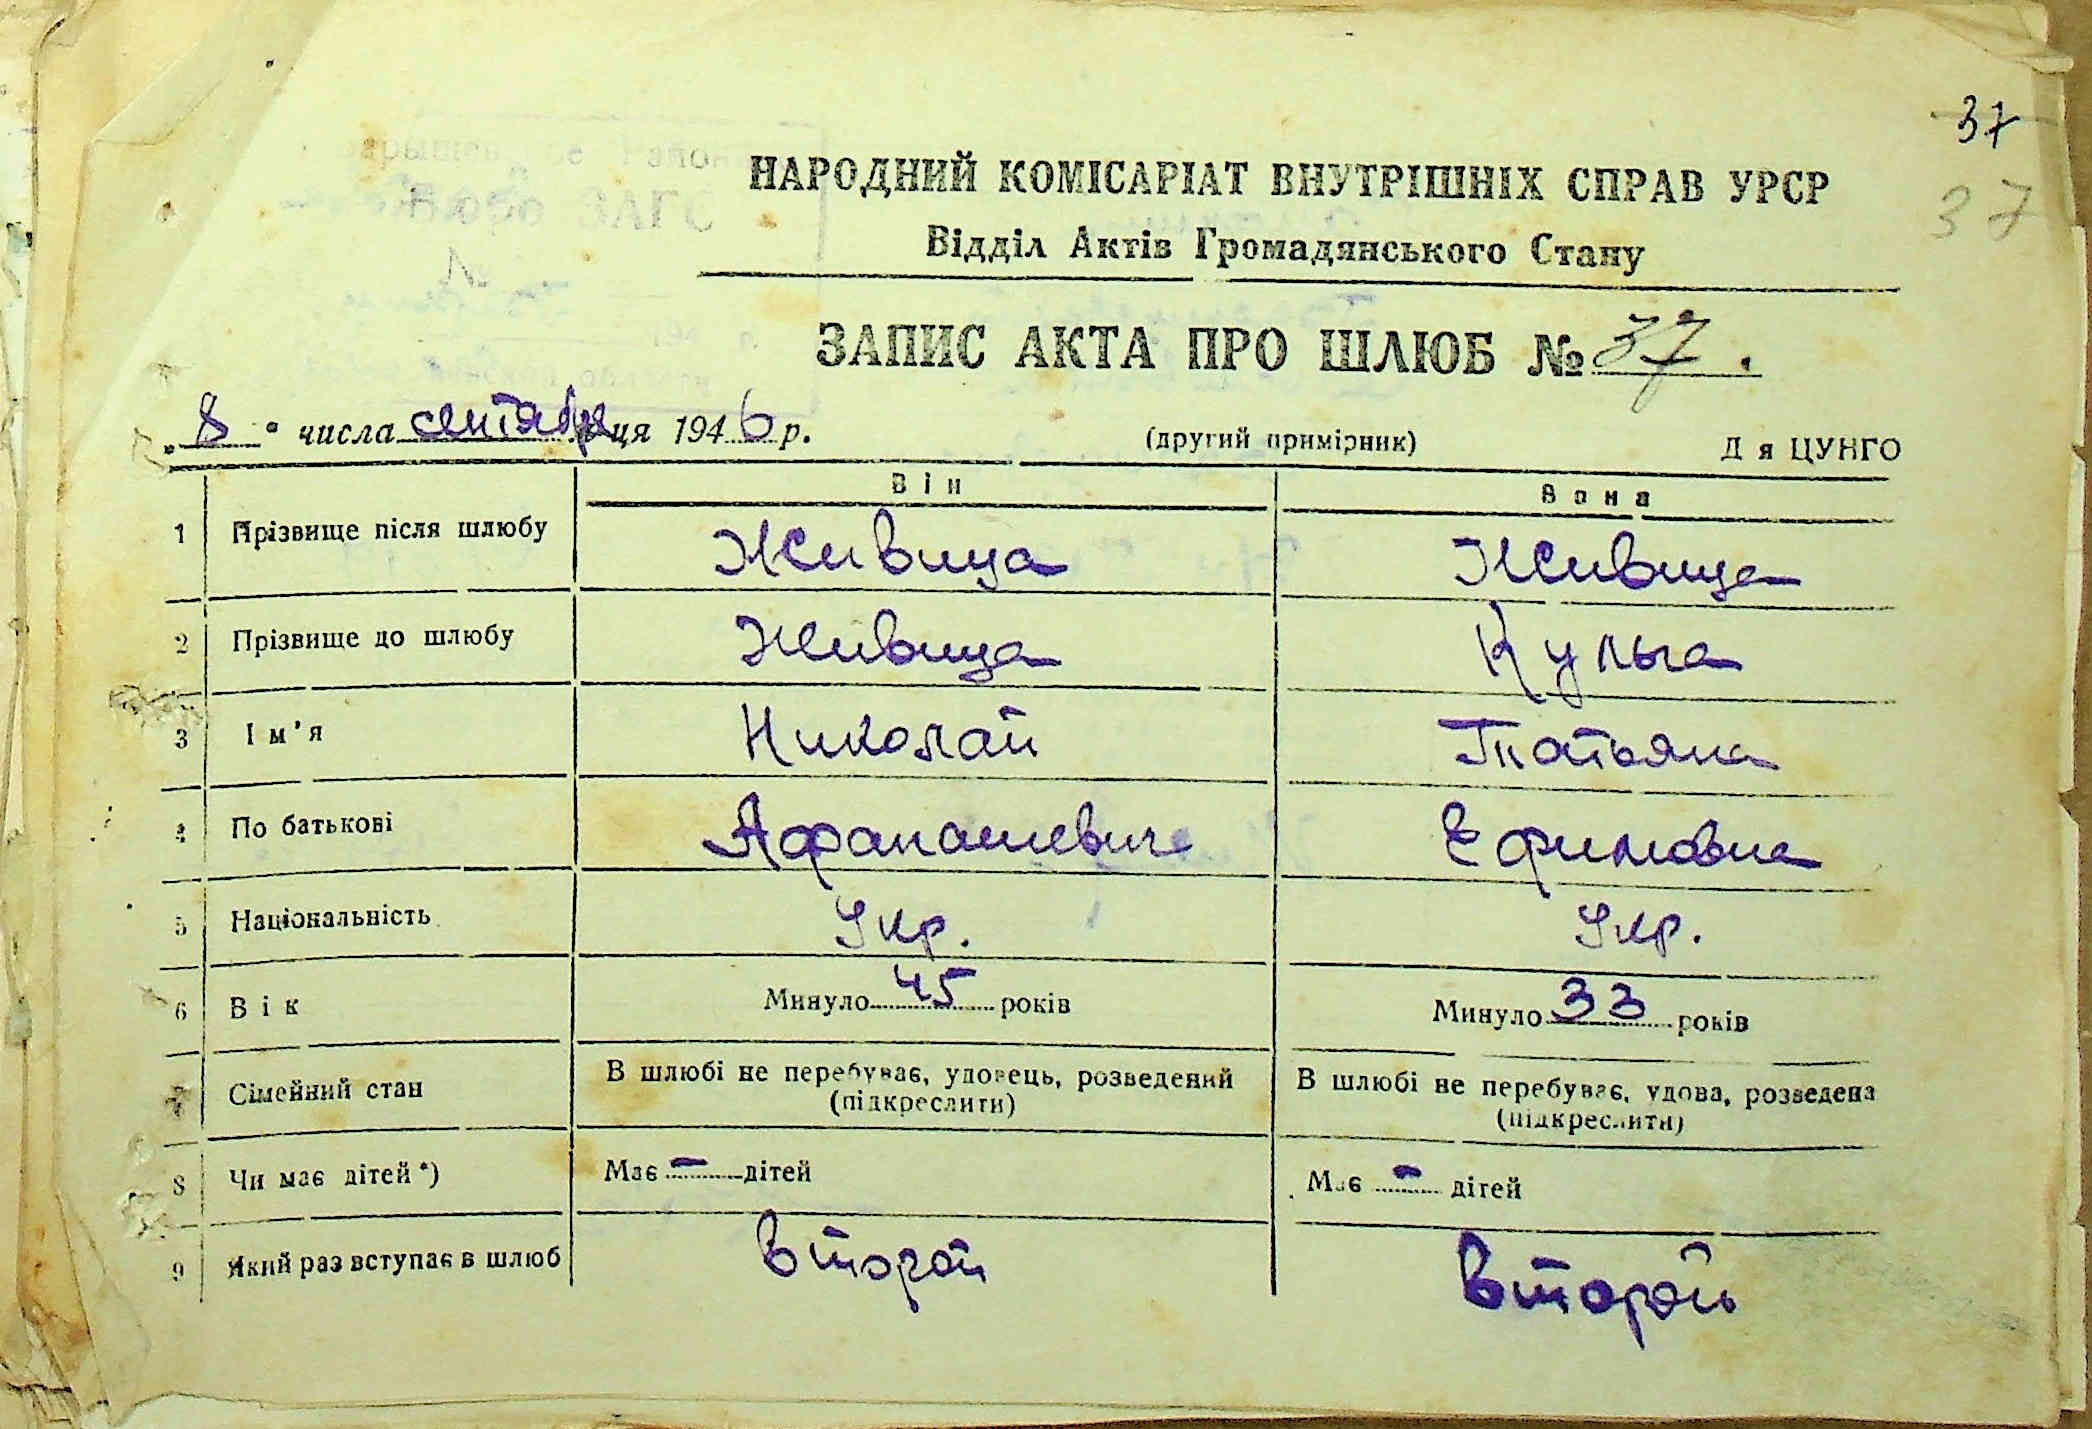 37
37
НАРОДНИЙ КОМІСАРІАТ ВНУТРІШНІХ СПРАВ УРСР
Відділ Актів Громадянського Стану
ЗАПИС АКТА ПРО ШЛЮБ № 37.
„8" числа сентября ця 1946 р. (другий примірник) Д я ЦУНГО
Він Вона
1 Прізвище після шлюбу Живица Живица
2 Прізвище до шлюбу Живица Кульга
3 Ім'я Николай Татьяна
4 По батькові Афанашевич Ефимовна
5 Національність Укр. Укр.
6 Вік Минуло 45 років Минуло 33 років
7 Сімейний стан В шлюбі не перебуває, удовець, розведений В шлюбі не перебуває, удова, розведена
(підкреслити) (підкреслити)
8 Чи має дітей *) Має – дітей Має – дітей
9 Який раз вступає в шлюб второй второй